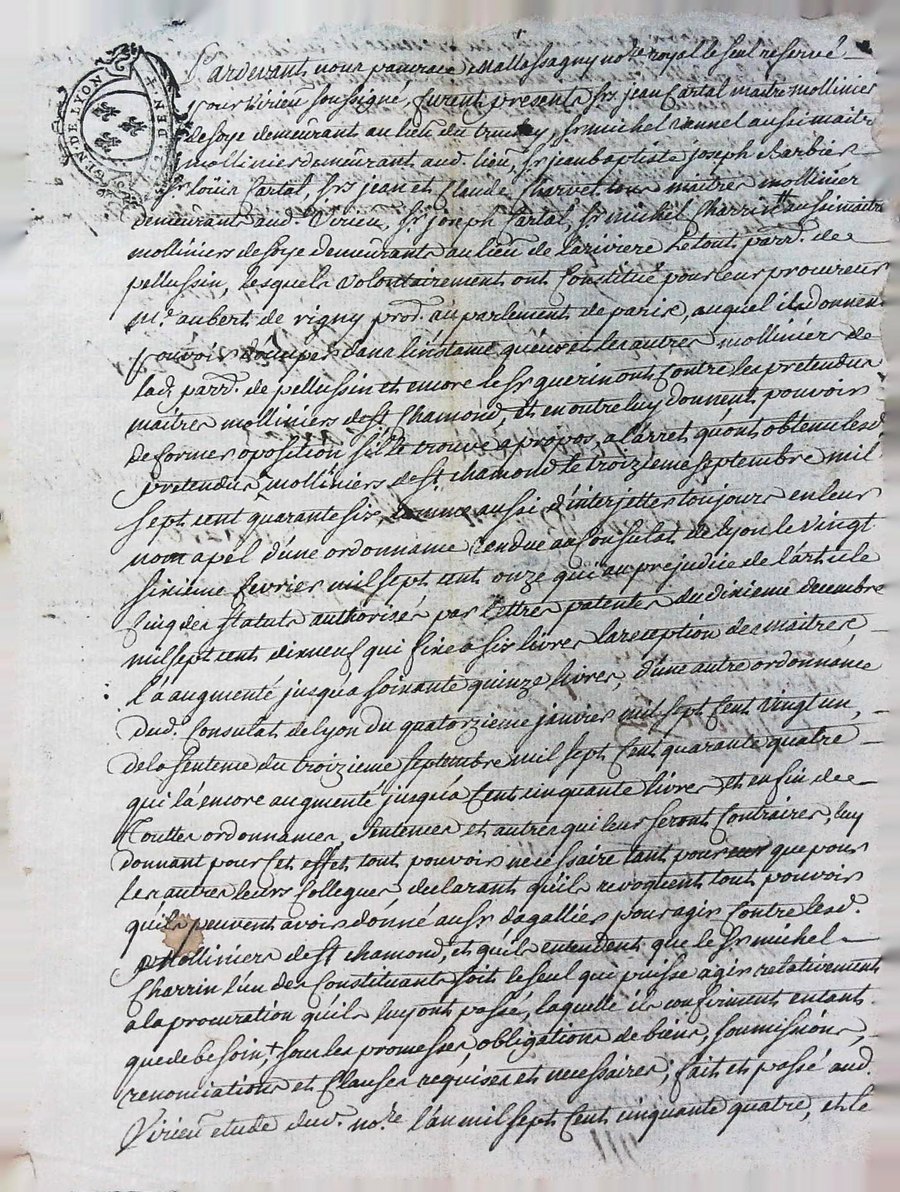 GEN. DE LYON
Pardevant nous pancrace Mallassagny nore royal le seul reservé
pour Virieu soussigné, furent presents srs jean Cartal maitre mollinier
de soye demeurant au lieu du, sr michel vannel aussi maitre
mollinier demeurant aud. lieu, sr jean baptiste joseph Barbier
sr loüis Cartal, srs jean et Claude Charvet tous maitres mollinier
demeurant aud. Virieu, sr. joseph Cartal, sr michel Charrin aussi maitre
molliniers de soye demeurant au lieu de la riviere le tout parr. de
pellussin, lesquels volontairement ont Constitué pour leur procureur
me. aubert de vigny pror. au parlement de paris, auquel ils donnent
pouvoir d'ocuper dans l'instance qu'eux et les autres molliniers de
lad. parr. de pellussin et encore le sr guerin ont Contre les pretendus
maitres molliniers de st Chamond, et en outre luy donnent pouvoir
de former oposition s'il le trouve a propos, a l'arret qu'ont obtenu lesd
pretendus molliniers de st chamond le troizieme septembre mil
sept cent quarante six comme aussi d'interjetter toujours en leur
nom apel d'une ordonnance rendue au Consulat de lyon le vingt
sixieme fevrier mil sept cent onze qui au prejudice de l'article
Cinq des statuts authorisés par lettres patentes du dixieme decembre
mil sept cent dixneuf qui fixe a six livres la reception des maitres,
l'a augmenté jusqu'a soixante quinze livres, d'une autre ordonnance
dud. Consulat de lyon du quatorzieme janvier mil sept Cent vingt un,
de la sentence du troizieme septembre mil sept Cent quarante quatre
qui l'a encore augmenté jusqu'a Cent cinquante livres et enfin de
touttes ordonnances, sentences et autres qui leur seront Contraires, luy
donnant pour Cet effet tout pouvoir necessaire tant pour eux que pour
les autres leurs Collegues, declarant qu'ils revoquent tout pouvoir
qu'ils peuvent avoir donné au sr dagallier pour agir Contre lesd.
molliniers de st chamond, et qu'ils entendent que le sr michel
Charrin l'un des Constituants soit le seul qui puisse agir relativement
a la procuration qu'ils luy ont passé, laquelle ils confirment en tant
que de besoin, sous les promesses, obligations de biens, soumissions,
renonciations et Clauses requises et necessaires; fait et passé aud.
Virieu etude dud. nore. l'an mil sept Cent cinquante quatre, et le